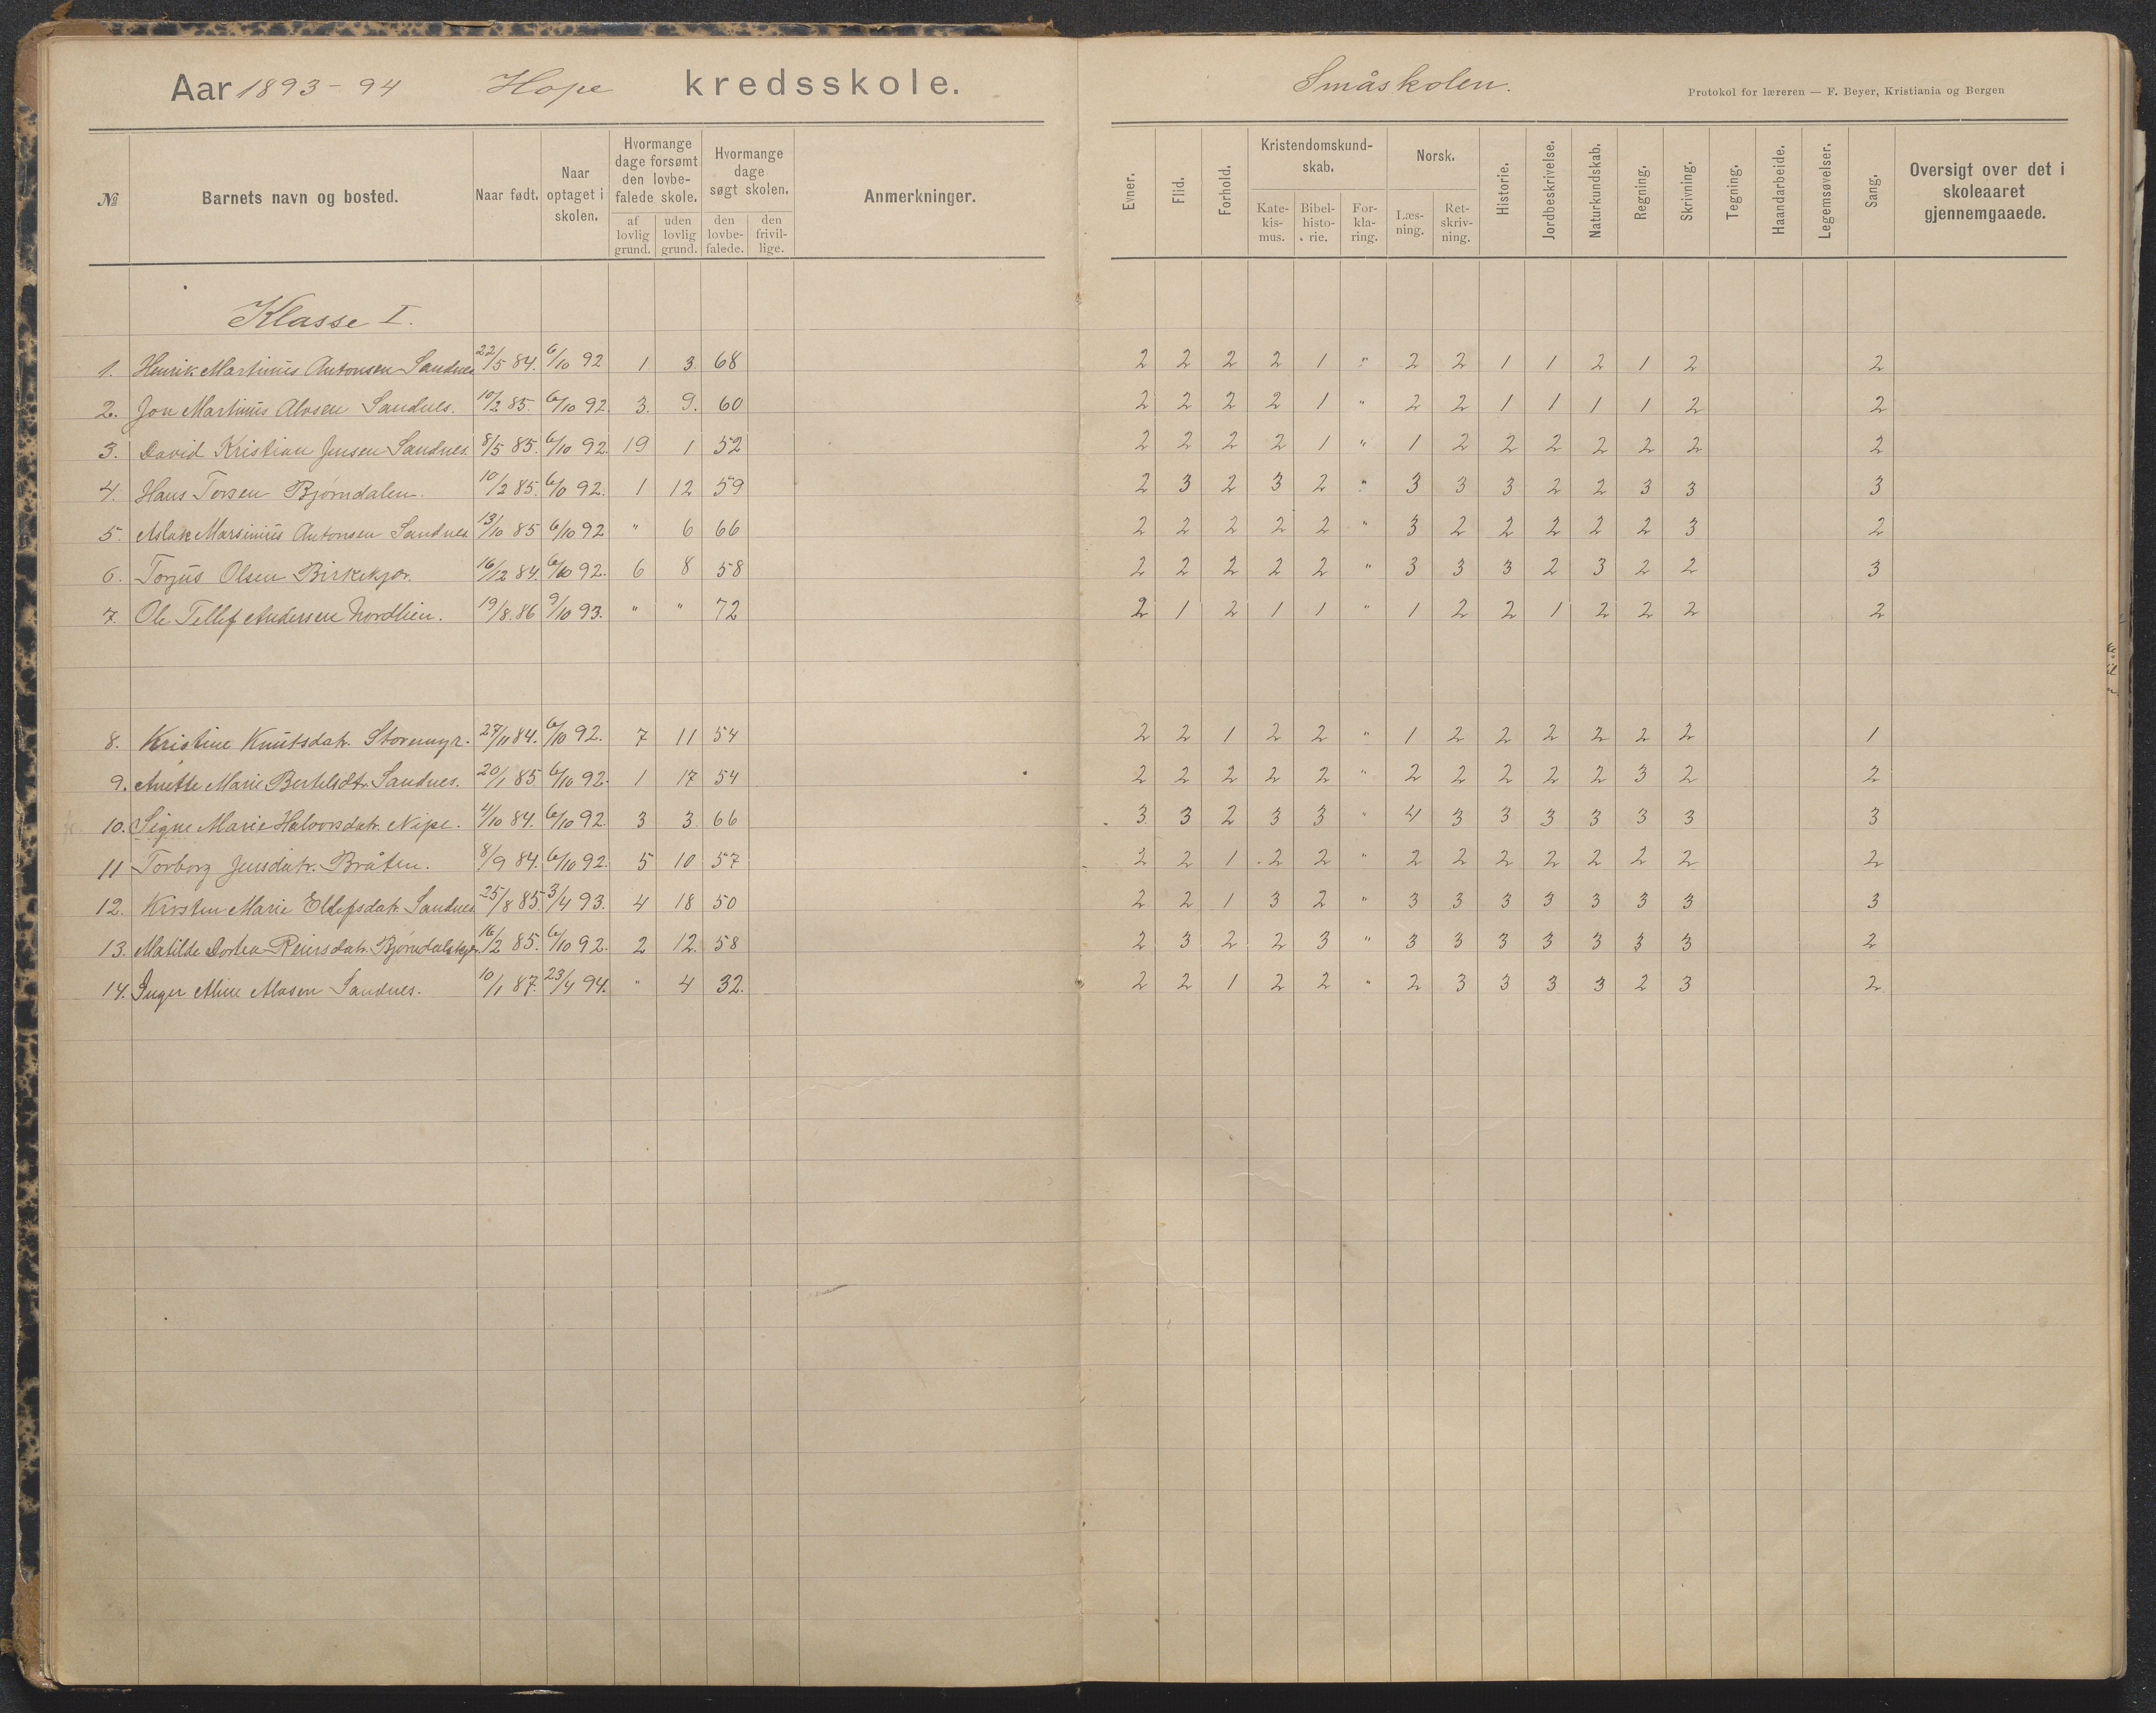 Aar 1893-94 Hope kredsskole.
№ Barnets navn og bosted. Naar født. Naar optaget i skolen. Hvormange dage forsømt den lovbefalede skole. af lovlig grund. uden lovlig grund. Hvormange dage søgt skolen. den lovbefalede. den frivillige. Anmerkninger.
Klasse I.
1. Henrik Martinius Antonsen Sandnes 22/5 84. 6/10 92 1 3. 68
2. Jon Martinius Alvsen Sandnes. 10/2 85. 6/10 92. 3. 9. 60
3. David Kristian Jensen Sandnes. 8/5 85. 6/10 92. 19 1 52
4. Hans Torsen Bjørndalen. 10/2 85. 6/10 92. 1 12 59
5. Aslak Marsinius Antonsen Sandnes 13/10 85 6/10 92 " 6 66
6. Torjus Olsen Birkekjær. 16/12 84. 6/10 92. 6 8 58
7. Ole Tellef Andersen Nordlien. 19/8. 86 9/10 93. " " 72
8. Kristine Knutsdatr. Storemyr. 27/11 84. 6/10 92. 7 11 54
9. Anette Marie Berteldtr Sandnes. 20/1 85 6/10 92. 1 17 54
10. Signe Marie Halvorsdatr. Nipe. 4/10 84. 6/10 92. 3 3. 66
11 Torborg Jensdatr. Bråten. 8/9 84. 6/10 92. 5 10 57
12. Kirsten Marie Ellefsdatr. Sandnes. 25/8 85. 3/4 93. 4 18 50
13. Matilde Dortea Reiersdatr. 16/2 85. 6/10 92. 2 12. 58
14. Inger Aline Alvsen Sandnes. 10/1 87. 23/4 94. " 4 32.
Småskolen.
Protokol for læreren — F. Beyer, Kristiania og Bergen
Evner. Flid. Forhold. Kristendomskundskab. Katekismus. Bibelhistorie. Forklaring. Norsk. Læsning. Retskrivning. Historie. Jordbeskrivelse. Naturkundskab. Regning. Skrivning. Tegning. Haandarbeide. Legemsøvelser. Sang. Oversigt over det i skoleaaret gjennemgaaede.
2 2 2 2 1 " 2 2 1 1 2 1 2 2
2 2 2 2 1 " 2 2 1 1 1 1 2 2
2 2 2 2 1 " 1 2 2 2 2 2 2 2
2 3 2 3 2 " 3 3 3 2 2 3 3 3
2 2 2 2 2 " 3 2 2 2 2 2 3 2
2 2 2 2 2 " 3 3 3 2 3 2 2 3
2 1 2 1 1 " 1 2 2 1 2 2 2 2
2 2 1 2 2 " 1 2 2 2 2 2 2 1
2 2 2 2 2 " 2 2 2 2 2 3 2 2
3 3 2 3 3 " 4 3 3 3 3 3 3 3
2 2 1 2 2 " 2 2 2 2 2 2 2 2
2 2 1 3 2 " 3 3 3 3 3 3 3 3
2 3 2 2 3 " 3 3 3 3 3 3 3 2
2 2 1 2 2 " 2 3 3 3 3 2 3 2